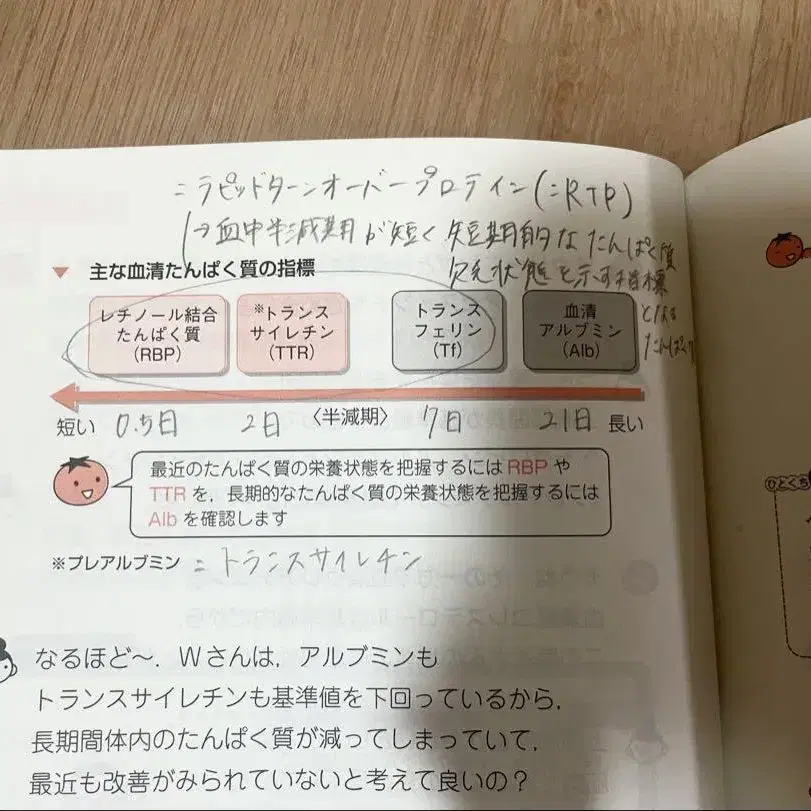 =ラピッドターンオーバープロテイン(=RTP)
→血中半減期が短く短期的なたんぱく質
欠乏状態を示す指標
となる
たんぱく
▼ 主な血清たんぱく質の指標
レチノール結合
たんぱく質
(RBP)
※トランス
サイレチン
(TTR)
トランス
フェリン
(Tf)
血清
アルブミン
(Alb)
短い 0.5日 2日 〈半減期〉 7日 21日 長い
最近のたんぱく質の栄養状態を把握するには RBP や
TTR を，長期的なたんぱく質の栄養状態を把握するには
Alb を確認します
※プレアルブミン =トランスサイレチン
なるほど〜．Wさんは，アルブミンも
トランスサイレチンも基準値を下回っているから，
長期間体内のたんぱく質が減ってしまっていて，
最近も改善がみられていないと考えて良いの？
ひとくち